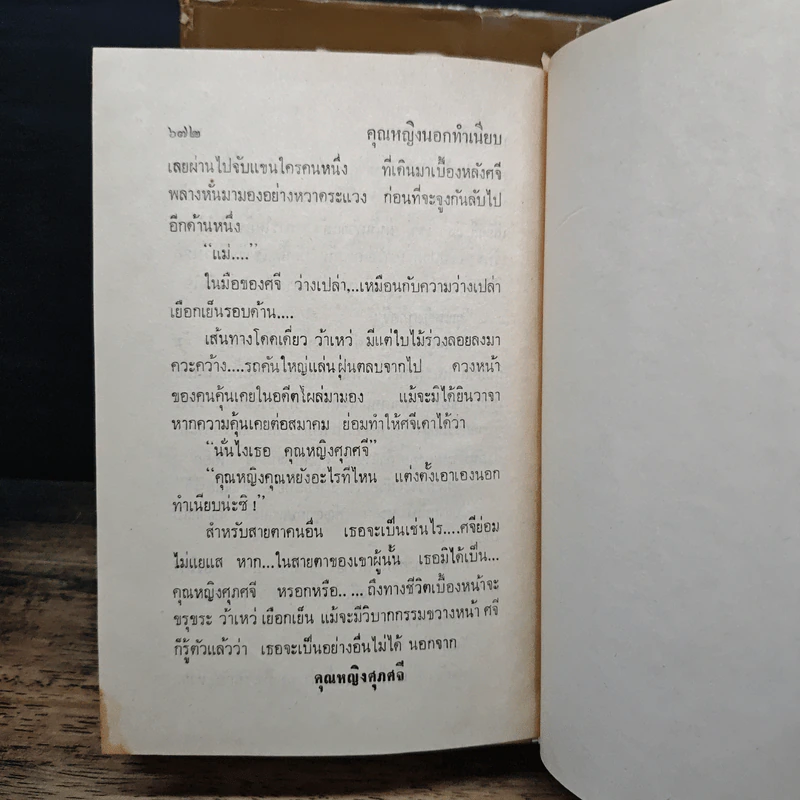 ๖๗๒ คุณหญิงนอกทำเนียบ
เลยผ่านไปจับแขนใครคนหนึ่ง ที่เดินมาเบื้องหลังศจี
พลางหั้นมามองอย่างหวาดระแวง ก่อนที่จะจูงกันลับไป
อีกด้านหนึ่ง
“แม่....”
ในมือของศจี ว่างเปล่า....เหมือนกับความว่างเปล่า
เยือกเย็นรอบด้าน....
เส้นทางโดดเดี่ยว ว้าเหว่ มีแต่ใบไม้ร่วงลอยลงมา
ควะคว้าง....รถคันใหญ่แล่นฝุ่นตลบจากไป ดวงหน้า
ของคนคุ้นเคยในอดีตโผล่มามอง แม้จะมิได้ยินวาจา
หากความคุ้นเคยต่อสมาคม ย่อมทำให้ศจีเดาได้ว่า
“นั่นไงเธอ คุณหญิงศุภศจี”
“คุณหญิงคุณหยังอะไรที่ไหน แต่งตั้งเอาเองนอก
ทำเนียบน่ะซิ !”
สำหรับสายตาคนอื่น เธอจะเป็นเช่นไร....ศจีย่อม
ไม่แยแส หาก...ในสายตาของเขาผู้นั้น เธอมิได้เป็น...
คุณหญิงศุภศจี หรอกหรือ.. ... ถึงทางชีวิตเบื้องหน้าจะ
ขรุขระ ว้าเหว่ เยือกเย็น แม้จะมีวิบากกรรมขวางหน้า ศจี
ก็รู้ตัวแล้วว่า เธอจะเป็นอย่างอื่นไม่ได้ นอกจาก
คุณหญิงศุภศจี